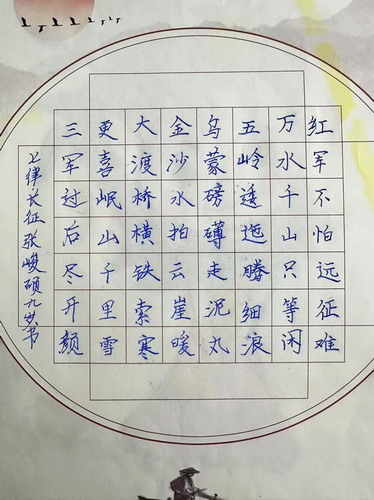 红军不怕远征难
万水千山只等闲
五岭逶迤腾细浪
乌蒙磅礴走泥丸
金沙水拍云崖暖
大渡桥横铁索寒
更喜岷山千里雪
三军过后尽开颜
七律长征张峻硕九岁书